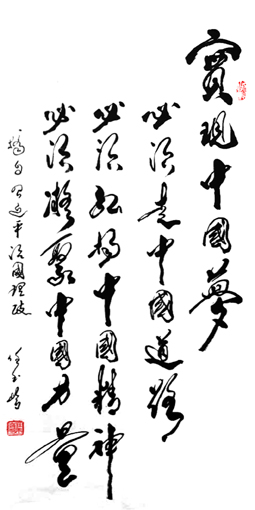 實現中國夢
必須走中國道路
必須弘揚中國精神
必須凝聚中國力量
摘自習近平治國理政